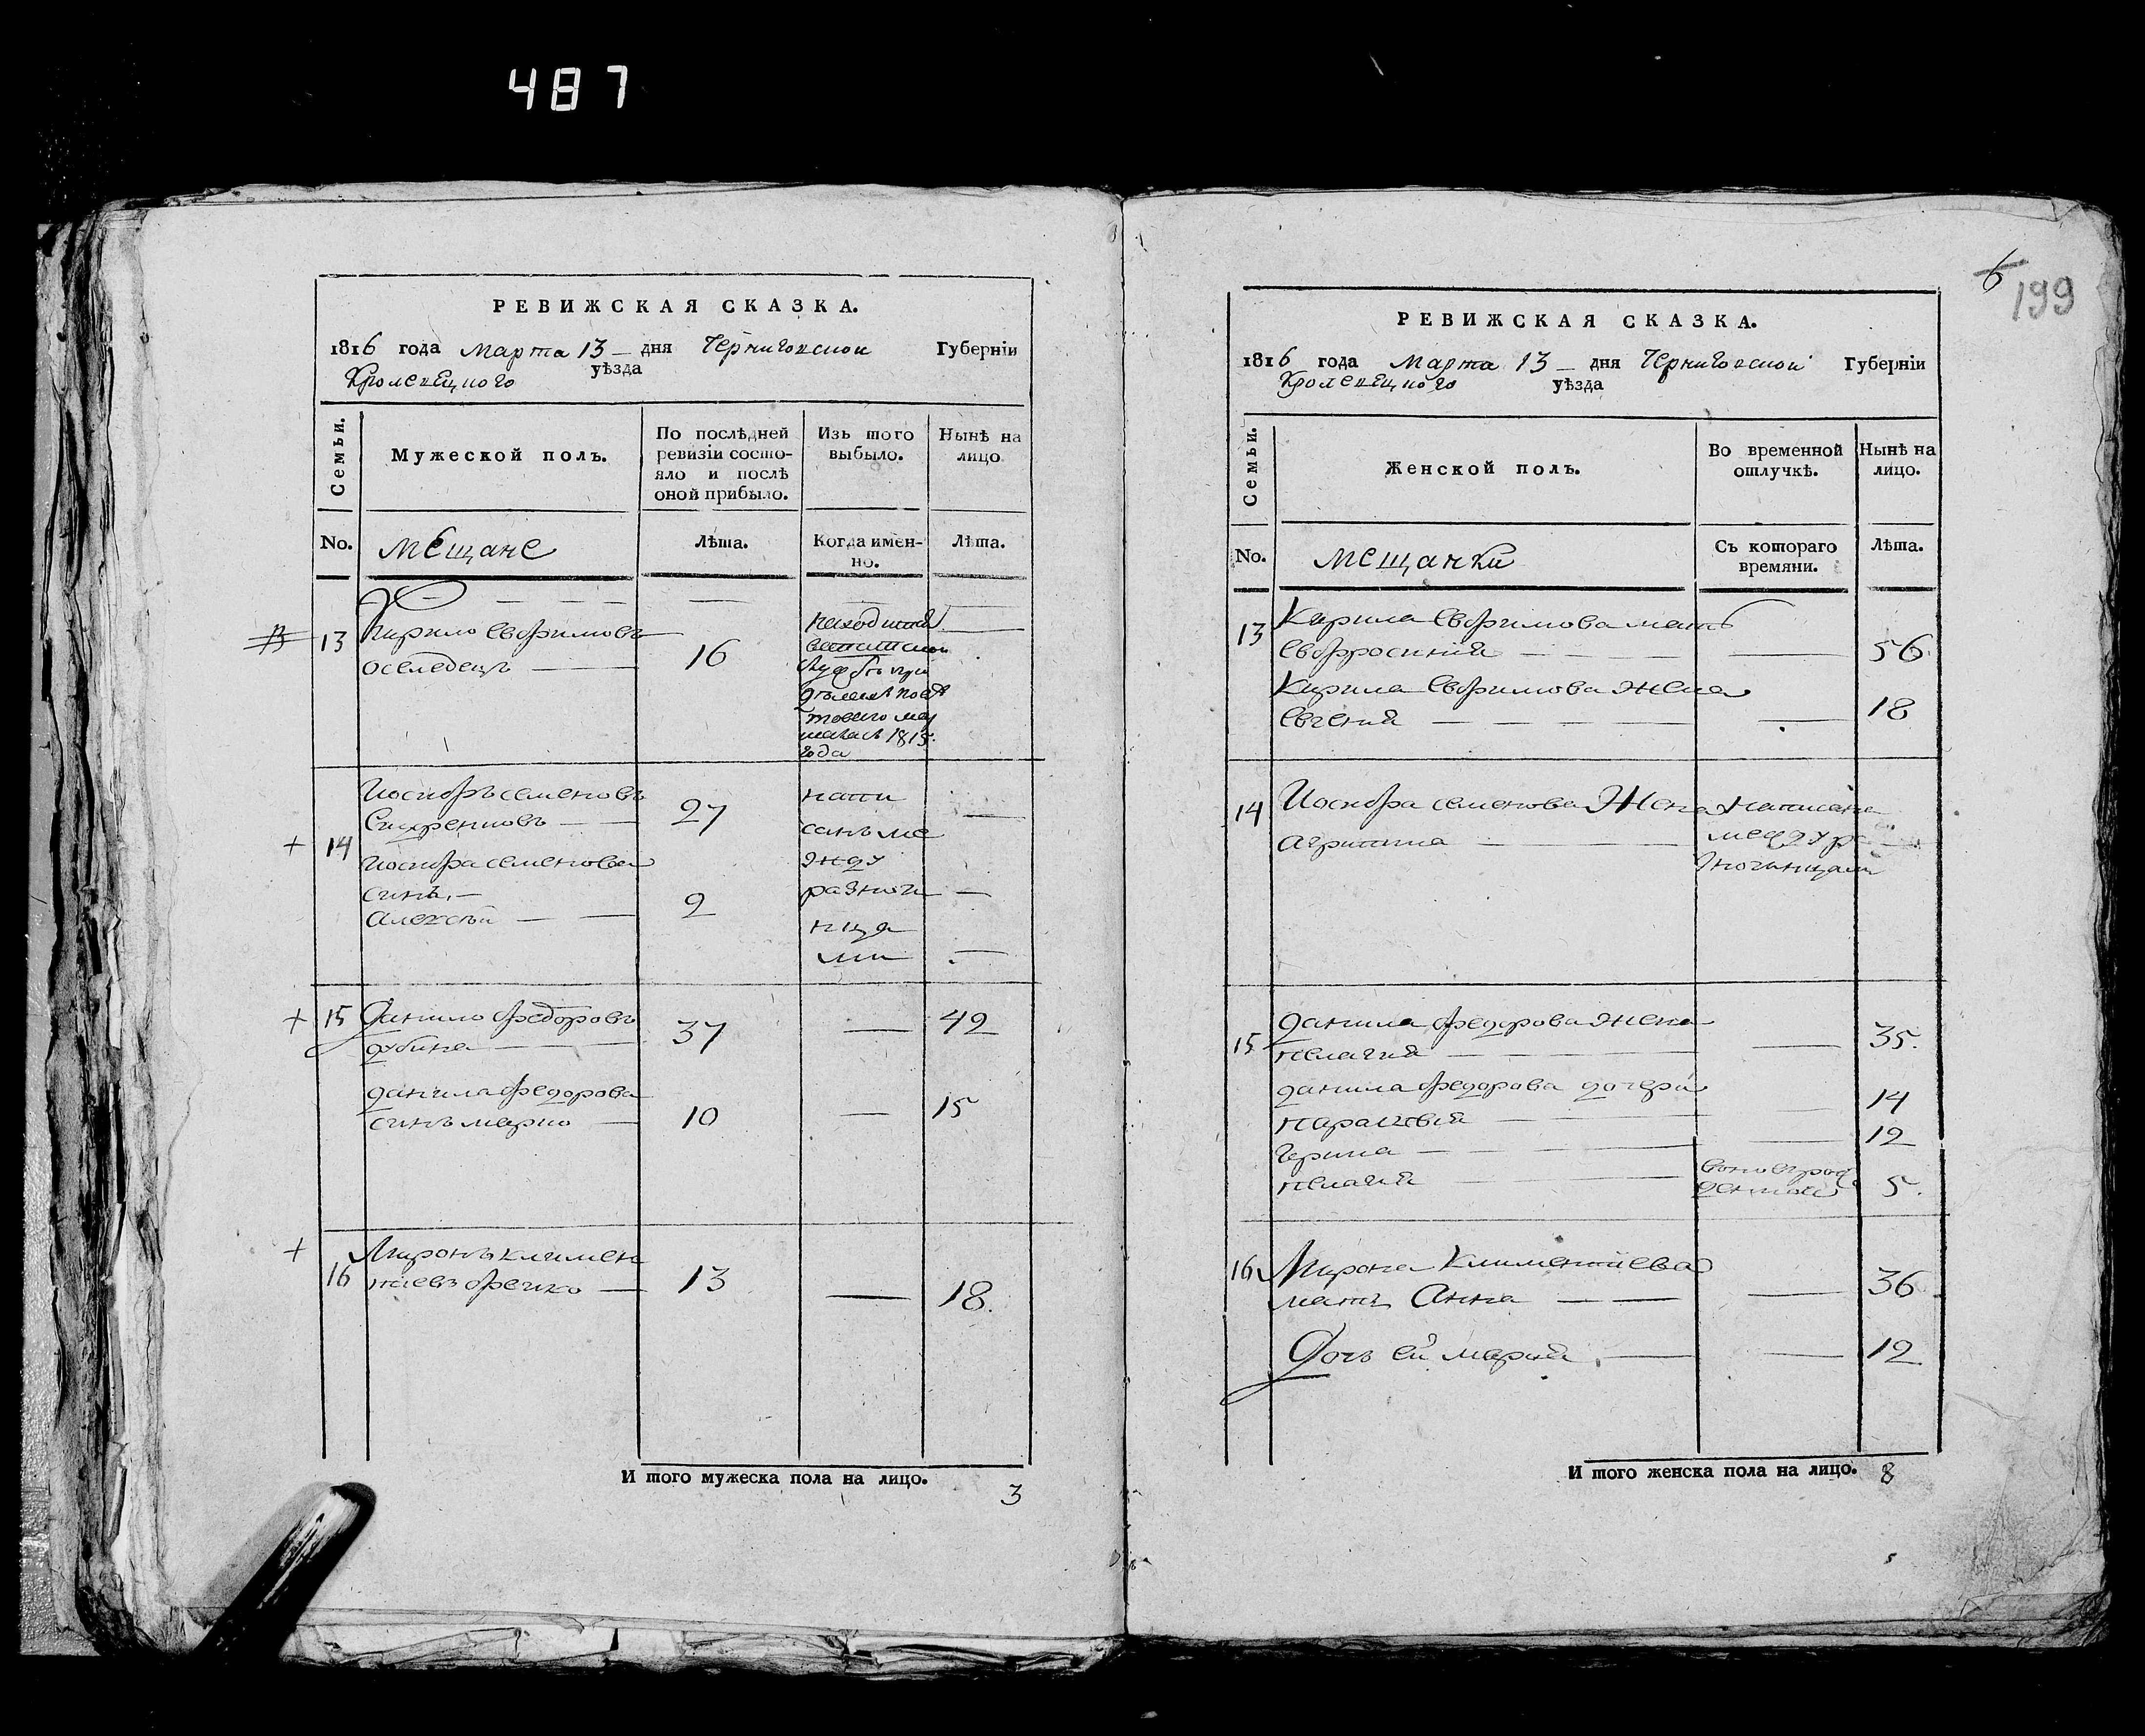 487
РЕВИЖСКАЯ СКАЗКА.
1816 года Марта 13 дня Черниговской Губернїи
Кролевецкого уѣзда
Семьи.
Мужеской полъ.
По послѣдней ревизїи состо-
яло и послѣ
оной прибыло.
Изъ того
выбыло.
Нынѣ на
лицо
No.
мещане
Лѣта.
Когда имен-
но.
Лѣта.
13
Кирило Евфимовъ
оселедецъ
16
находится
1815.
года
14
Иосифъ семеновъ
27
Иосифа семенова
синъ
алексѣй
2
напи
санъ ме
жду
разночи
нца
ми
15
Данило федоровъ
дубина
37
42
данила федорова
синъ марко
10
15
16
Миронъ климен
тиевъ
13
18.
И того мужеска пола на лицо.
3
6
199
РЕВИЖСКАЯ СКАЗКА.
1816 года Марта 13 дня Черниговской Губернїи
Кролевецкого уѣзда
Семьи.
Женской полъ.
Во временной
отлучкѣ.
Нынѣ на
лицо.
No.
мещанки
Съ котораго
времяни.
Лѣта.
13
Кирила Евфимова мать
Евфросинія
56
Кирила Евфимова жена
Евгенія
18
14
Иосифа семенова Жена
агрипина
написана
между ра
зночинцами
15
данила федорова жена
пелагия
35.
данила федорова дочери
параскевия
14
12
пелагия
5.
16
Мирона Климентиева
мать Анна
36
Дочь ей мария
12
И того женска пола на лицо. 8